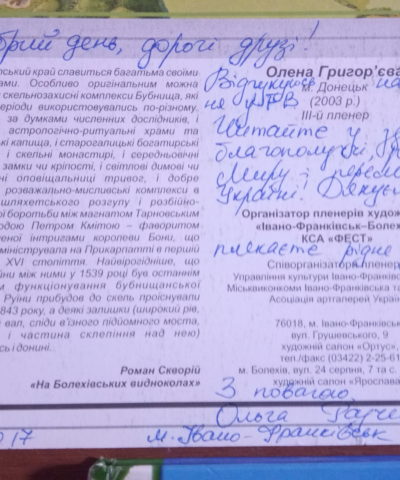 брий день, дорогі друзі!
ський край славиться багатьма своїми
ами. Особливо оригінальним можна
скельнозахисні комплекси Бубнища, які
періоди використовувались по-різному.
за думками численних дослідників, і
астрологічно-ритуальні храми та
кі капища, і старогалицькі богатирські
і скельні монастирі, і середньовічні
замки чи кріпості, і світлові димові чи
ні оповіщальниці тривог, і добре
розважально-мисливські комплекси в
шляхетського розгулу і розбійно-
ої боротьби між магнатом Тарновським
одою Петром Кмітою – фаворитом
еної інтригами королеви Бони, що
мініструвала на Прикарпатті в першій
XVI століття. Найвірогідніше, що
йни між ними у 1539 році був останнім
м функціонування бубнищанської
Руїни прибудов до скель проіснували
843 року, а деякі залишки (широкий рів,
вал, сліди в'їзного підйомного моста,
і частина склепіння над нею)
ь і донині.
Роман Скворій
«На Болехівських видноколах»
Олена Григор'єва
Відгукнусь на
м. Донецьк
(2003 р.)
III-й пленер
Читайте у з
благополуччі,
Миру і перемо
Україні! Дякує
Організатор пленерів худож
«Івано-Франківськ–Болех
КСА «ФЕСТ»
рідне
Співорганізатор пленер
Управління культури Івано-Франків
Міськвиконкоми Івано-Франківська та
Асоціація артгалерей Україн
76018, м. Івано-Франківсь
вул. Грушевського, 9
художній салон «Ортус»,
тел./факс (03422) 2-25-61
м. Болехів, вул. 24 серпня, 7 та с.
художній салон «Ярослава
З повагою,
Ольга
17
м. Івано-Франківськ